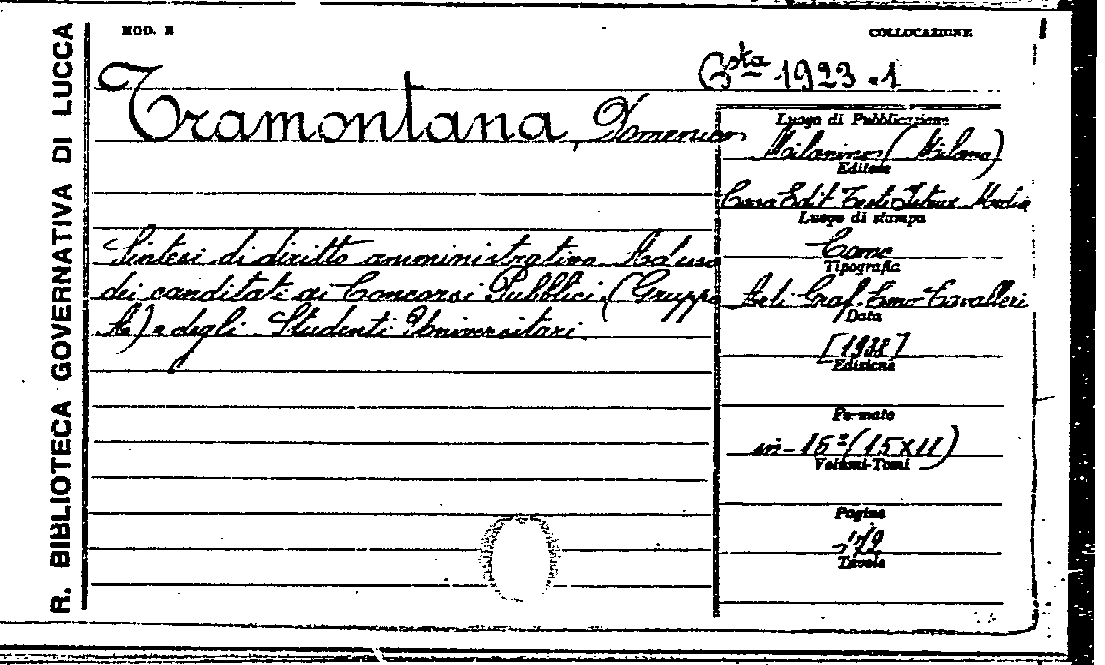 R. BIBLIOTECA GOVERNATIVA DI LUCCA
MOD. E
COLLOCAZIONE
Bsta 1923.1
Tramontana, Domenico
Luogo di Pubblicazione
Milanino (Milano)
Editore
Casa Edit. Testi
Luogo di stampa
Como
Tipografia
Arti Graf. Emo Cavalleri
Data
[1938]
Edizione
Formato
in-16º (15x11)
Volumi-Tomi
Pagine
Tavole
Sintesi di diritto amministrativo. Ad uso
dei canditati ai Concorsi Pubblici (Gruppo
A) e degli Studenti Universitari.